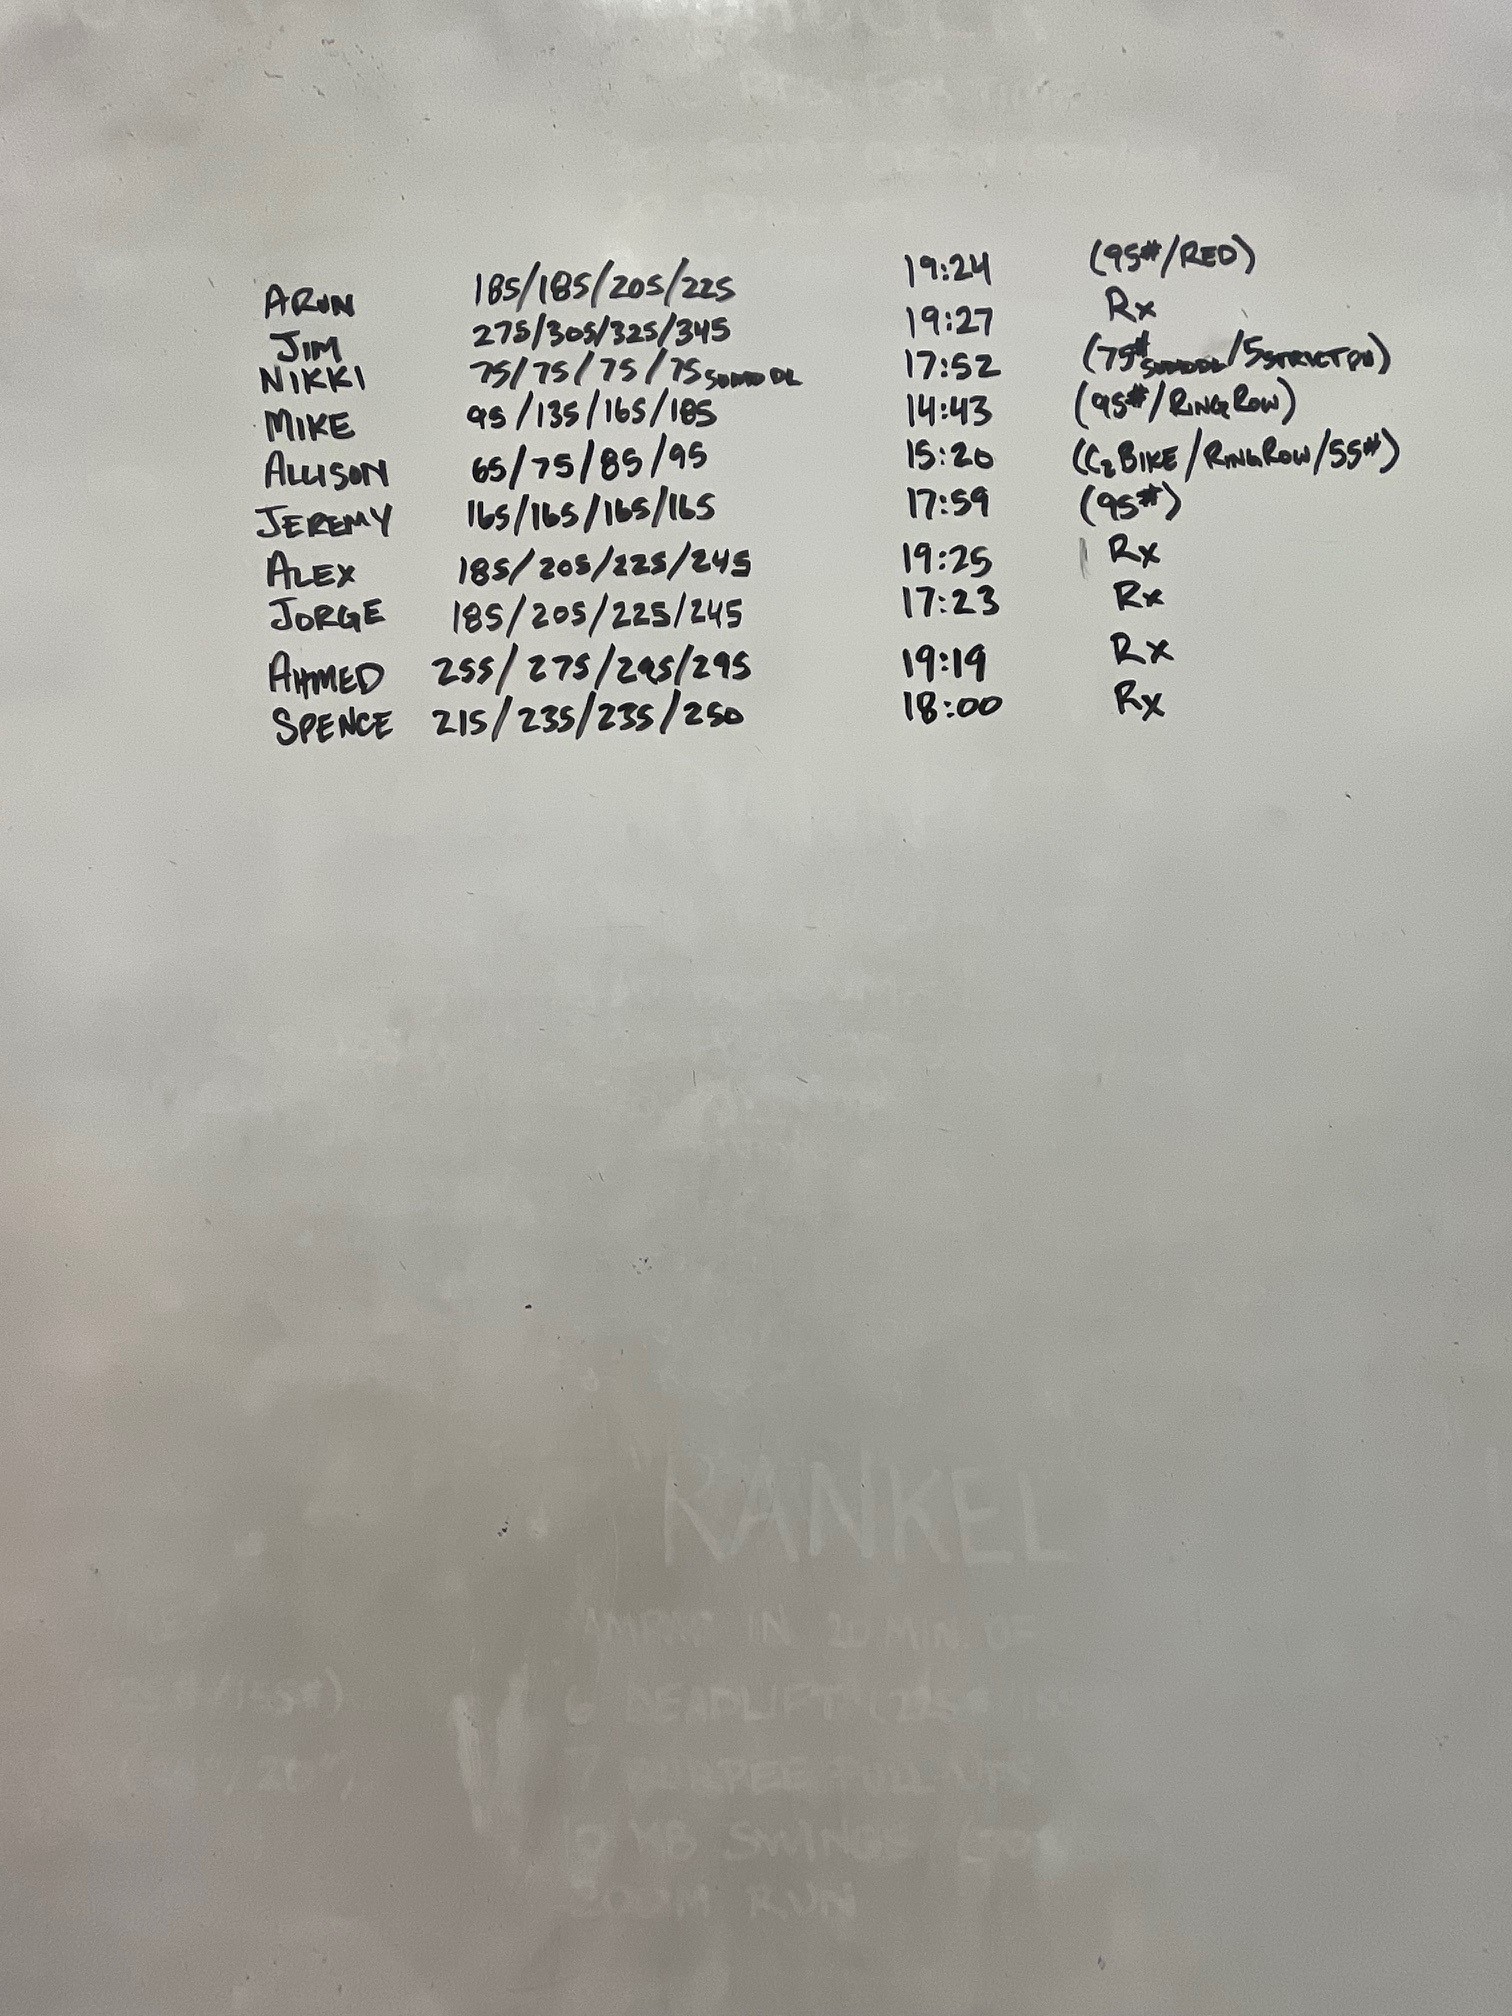 ARUN 185/185/205/225 19:24 (95#/RED)
JIM 275/305/325/345 19:27 Rx
NIKKI 75/75/75/75 SUMO DL 17:52 (75# SUMODL/5 STRICT PU)
MIKE 95/135/165/185 14:43 (95#/RING ROW)
ALLISON 65/75/85/95 15:20 (C2 BIKE/RING ROW/55#)
JEREMY 165/165/165/165 17:59 (95#)
ALEX 185/205/225/245 19:25 Rx
JORGE 185/205/225/245 17:23 Rx
AHMED 255/275/295/295 19:19 Rx
SPENCE 215/235/235/250 18:00 Rx
"RANKEL"
AMRAP IN 20 MIN. OF
6 DEADLIFT (225#
7 BURPEE PULL UPS
10 KB SWINGS (70
200M RUN